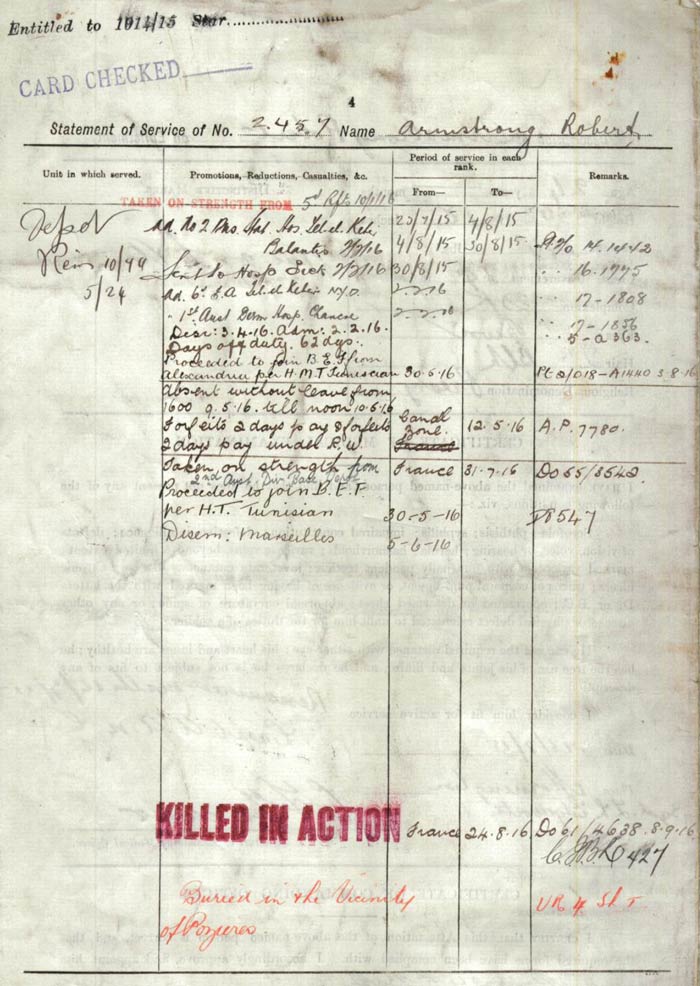 Entitled to 1914/15 Star
CARD CHECKED
4
Statement of Service of No. 2457 Name Armstrong Robert
Unit in which served. Promotions, Reductions, Casualties, &c. Period of service in each rank. Remarks.
From— To—
TAKEN ON STRENGTH FROM 5th Rfts 10/1/16
Depot 23/7/15 4/8/15
4/8/15 30/8/15 14.1442
Reins 10/
Sent to Hosp Sick 30/8/15 " 16.1775
5/24
ad. Tel el Kebir N.Y.D. 2-2-16 " 17-1808
" 1st Aust Derm Hosp. 2-2-16
Disc: 3.4.16. Adm: 2.2.16. " 17-1856
Days off duty. 62 days. " 5-A363.
Proceeded to join B.E.F from
Alexandria per H.M.T. Tunisian 30.5.16 A1440 3.8.16
Absent without leave from
1600 9.5.16. till noon 10.5.16
Forfeits 2 days pay & forfeits Canal Zone. 12.5.16 A.P. 7780.
2 days pay under R.W. France
Taken on strength from France 31.7.16 Do 55/3542
2nd Aust. Div. Base Depot
Proceeded to join B.E.F
per H.T. Tunisian 30-5-16 D8547
Disem: Marseilles 5-6-16
KILLED IN ACTION France 24.8.16 Do 61/4638. 8.9.16
427
Buried in the Vicinity
of Pozieres